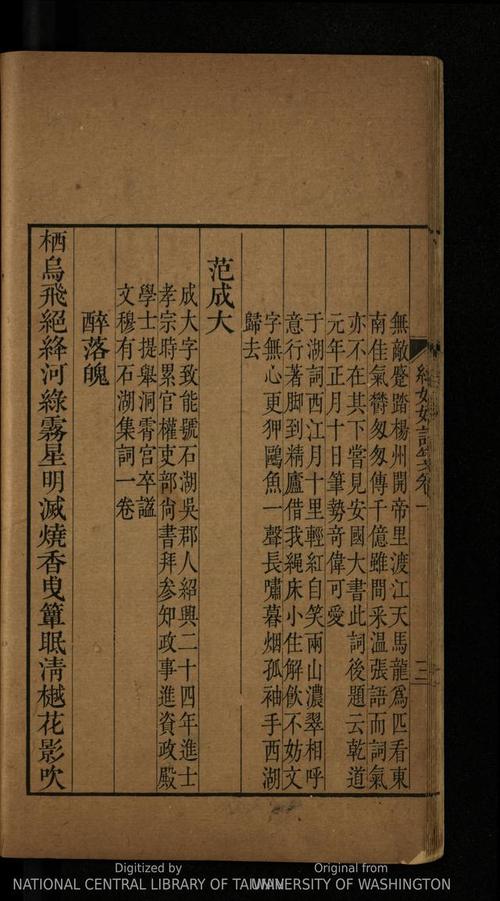 無敵蹙踏楊州開帝里渡江天馬龍為匹看東
南佳氣鬱匆匆傳千億雖間采温張語而詞氣
亦不在其下嘗見安國大書此詞後題云乾道
元年正月十日筆勢竒偉可愛
于湖詞西江月十里輕紅自笑兩山濃翠相呼
意行著脚到精廬借我繩床小住解飲不妨文
字無心更狎鷗魚一聲長嘯暮烟孤袖手西湖
歸去
范成大
成大字致能號石湖吳郡人紹興二十四年進士
孝宗時累官權吏部尚書拜参知政事進資政殿
學士提舉洞霄宮卒諡
文穆有石湖集詞一卷
醉落魄
栖烏飛絕絳河綠霧星明滅燒香曳簟眠淸樾花影吹
絕妙好詞箋卷一
三
Digitized by
NATIONAL CENTRAL LIBRARY OF TAIWAN
Original from
UNIVERSITY OF WASHINGTON